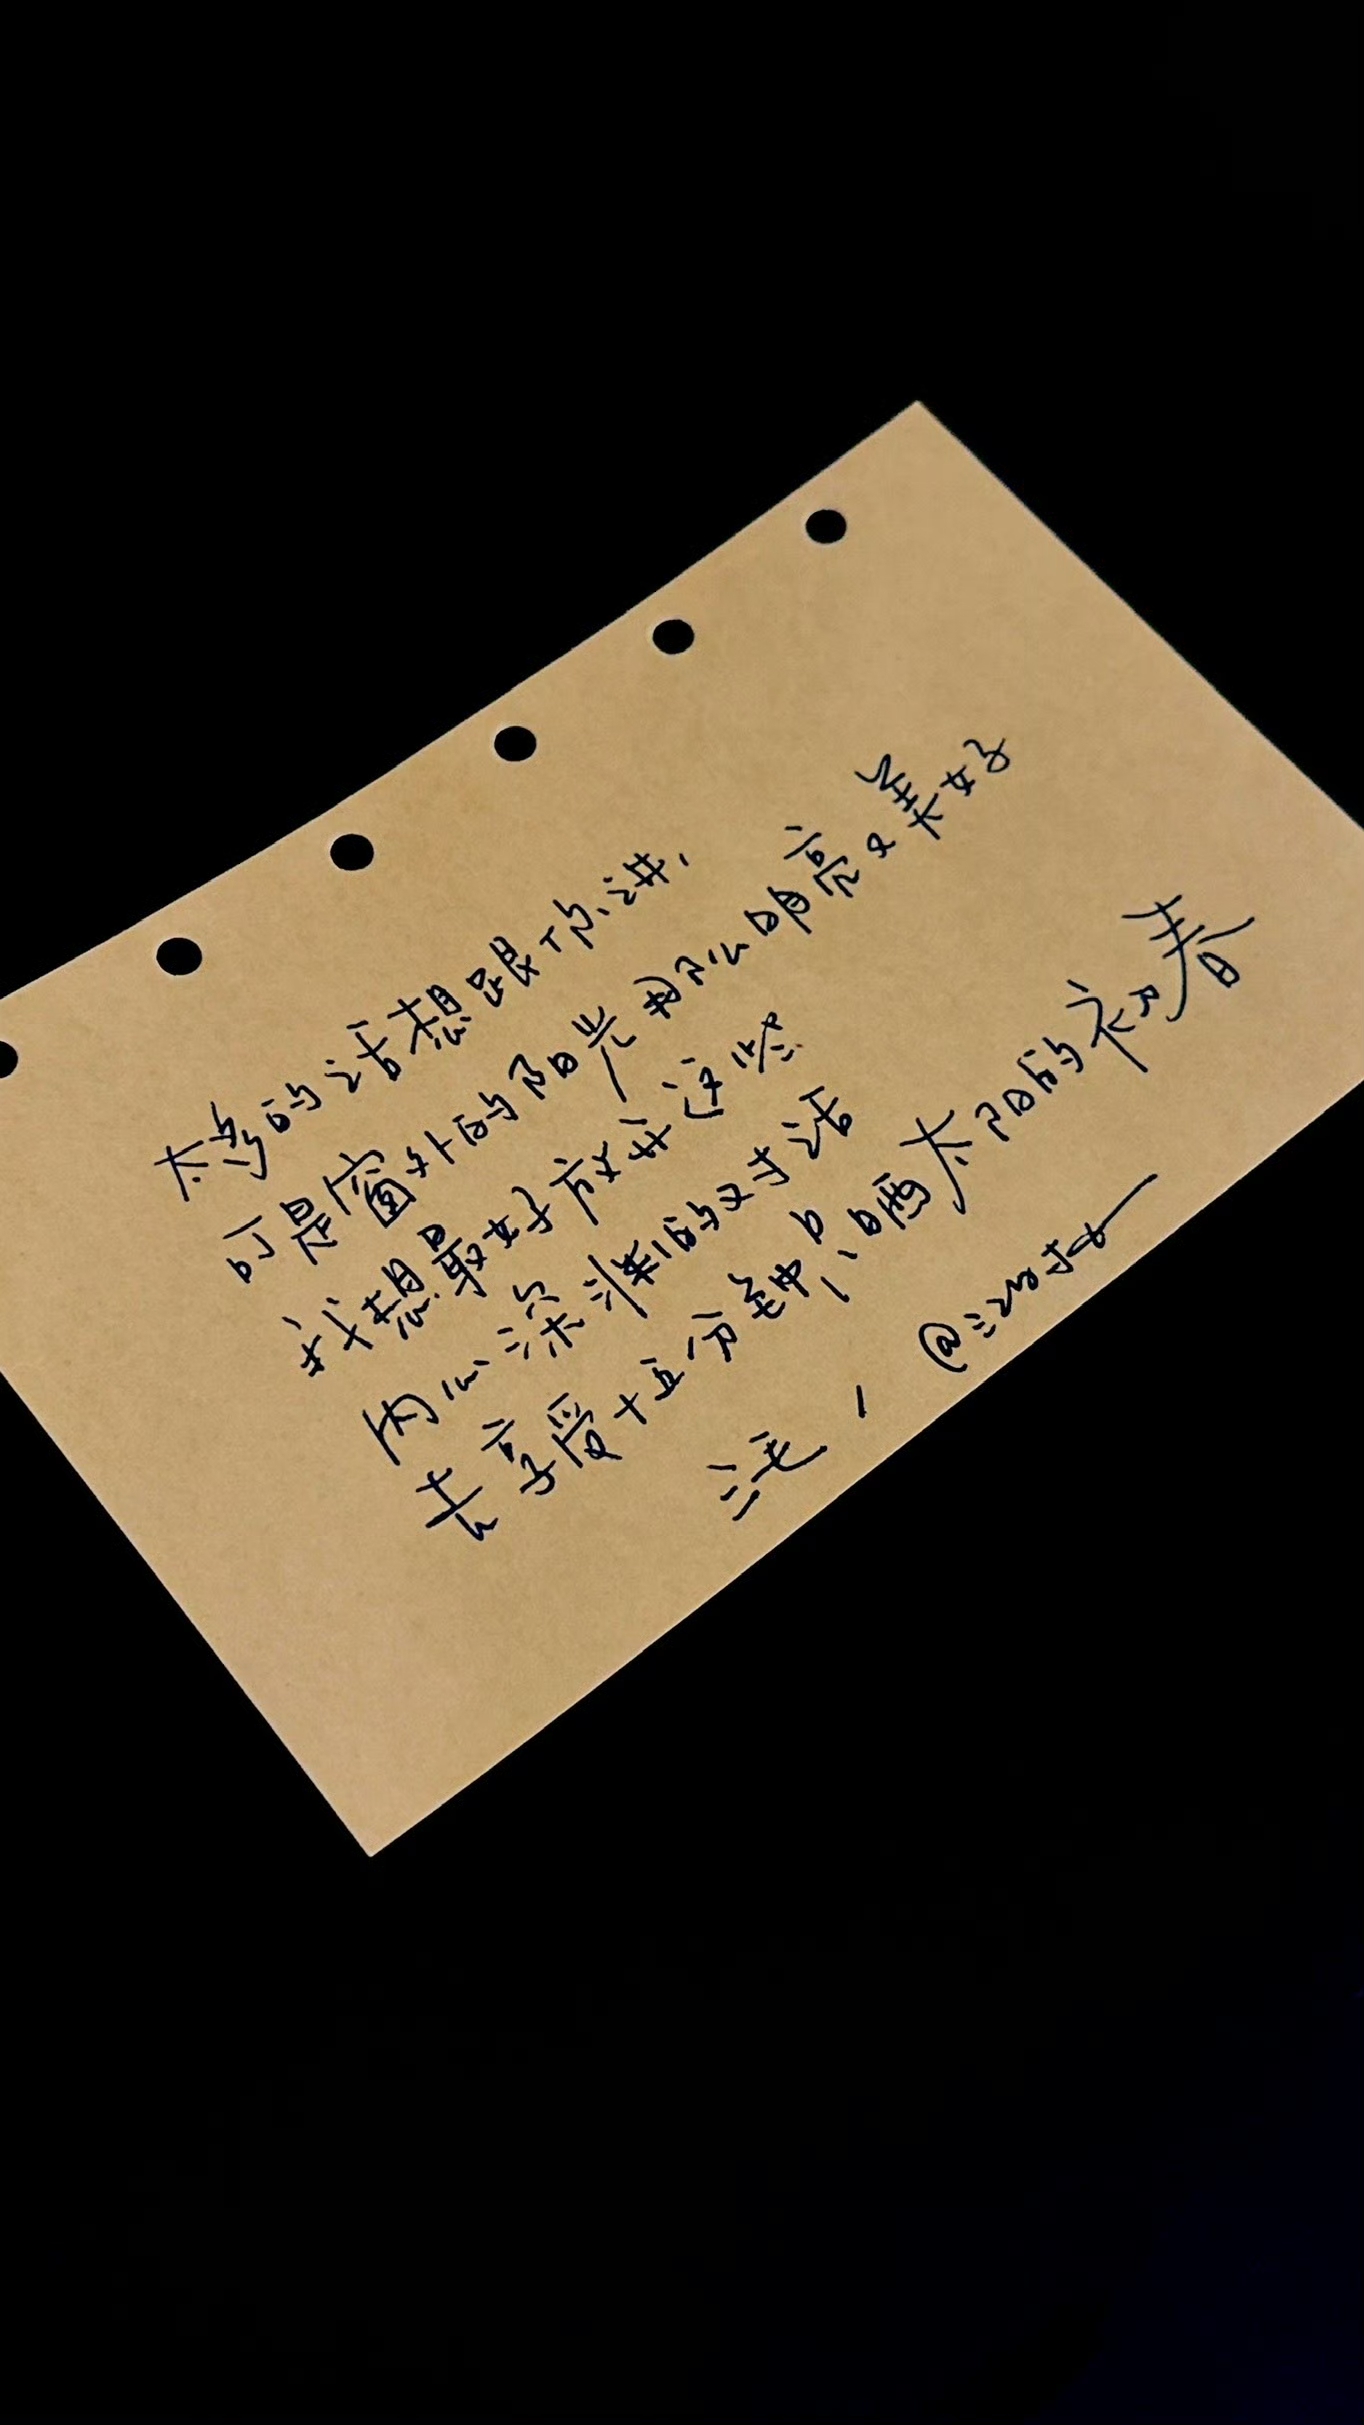 太多的话想跟你讲,
可是窗外的阳光那么明亮又美好
我想最好放开这些
内心深渊的对话
去享受十五分钟只晒太阳的初春
三毛,